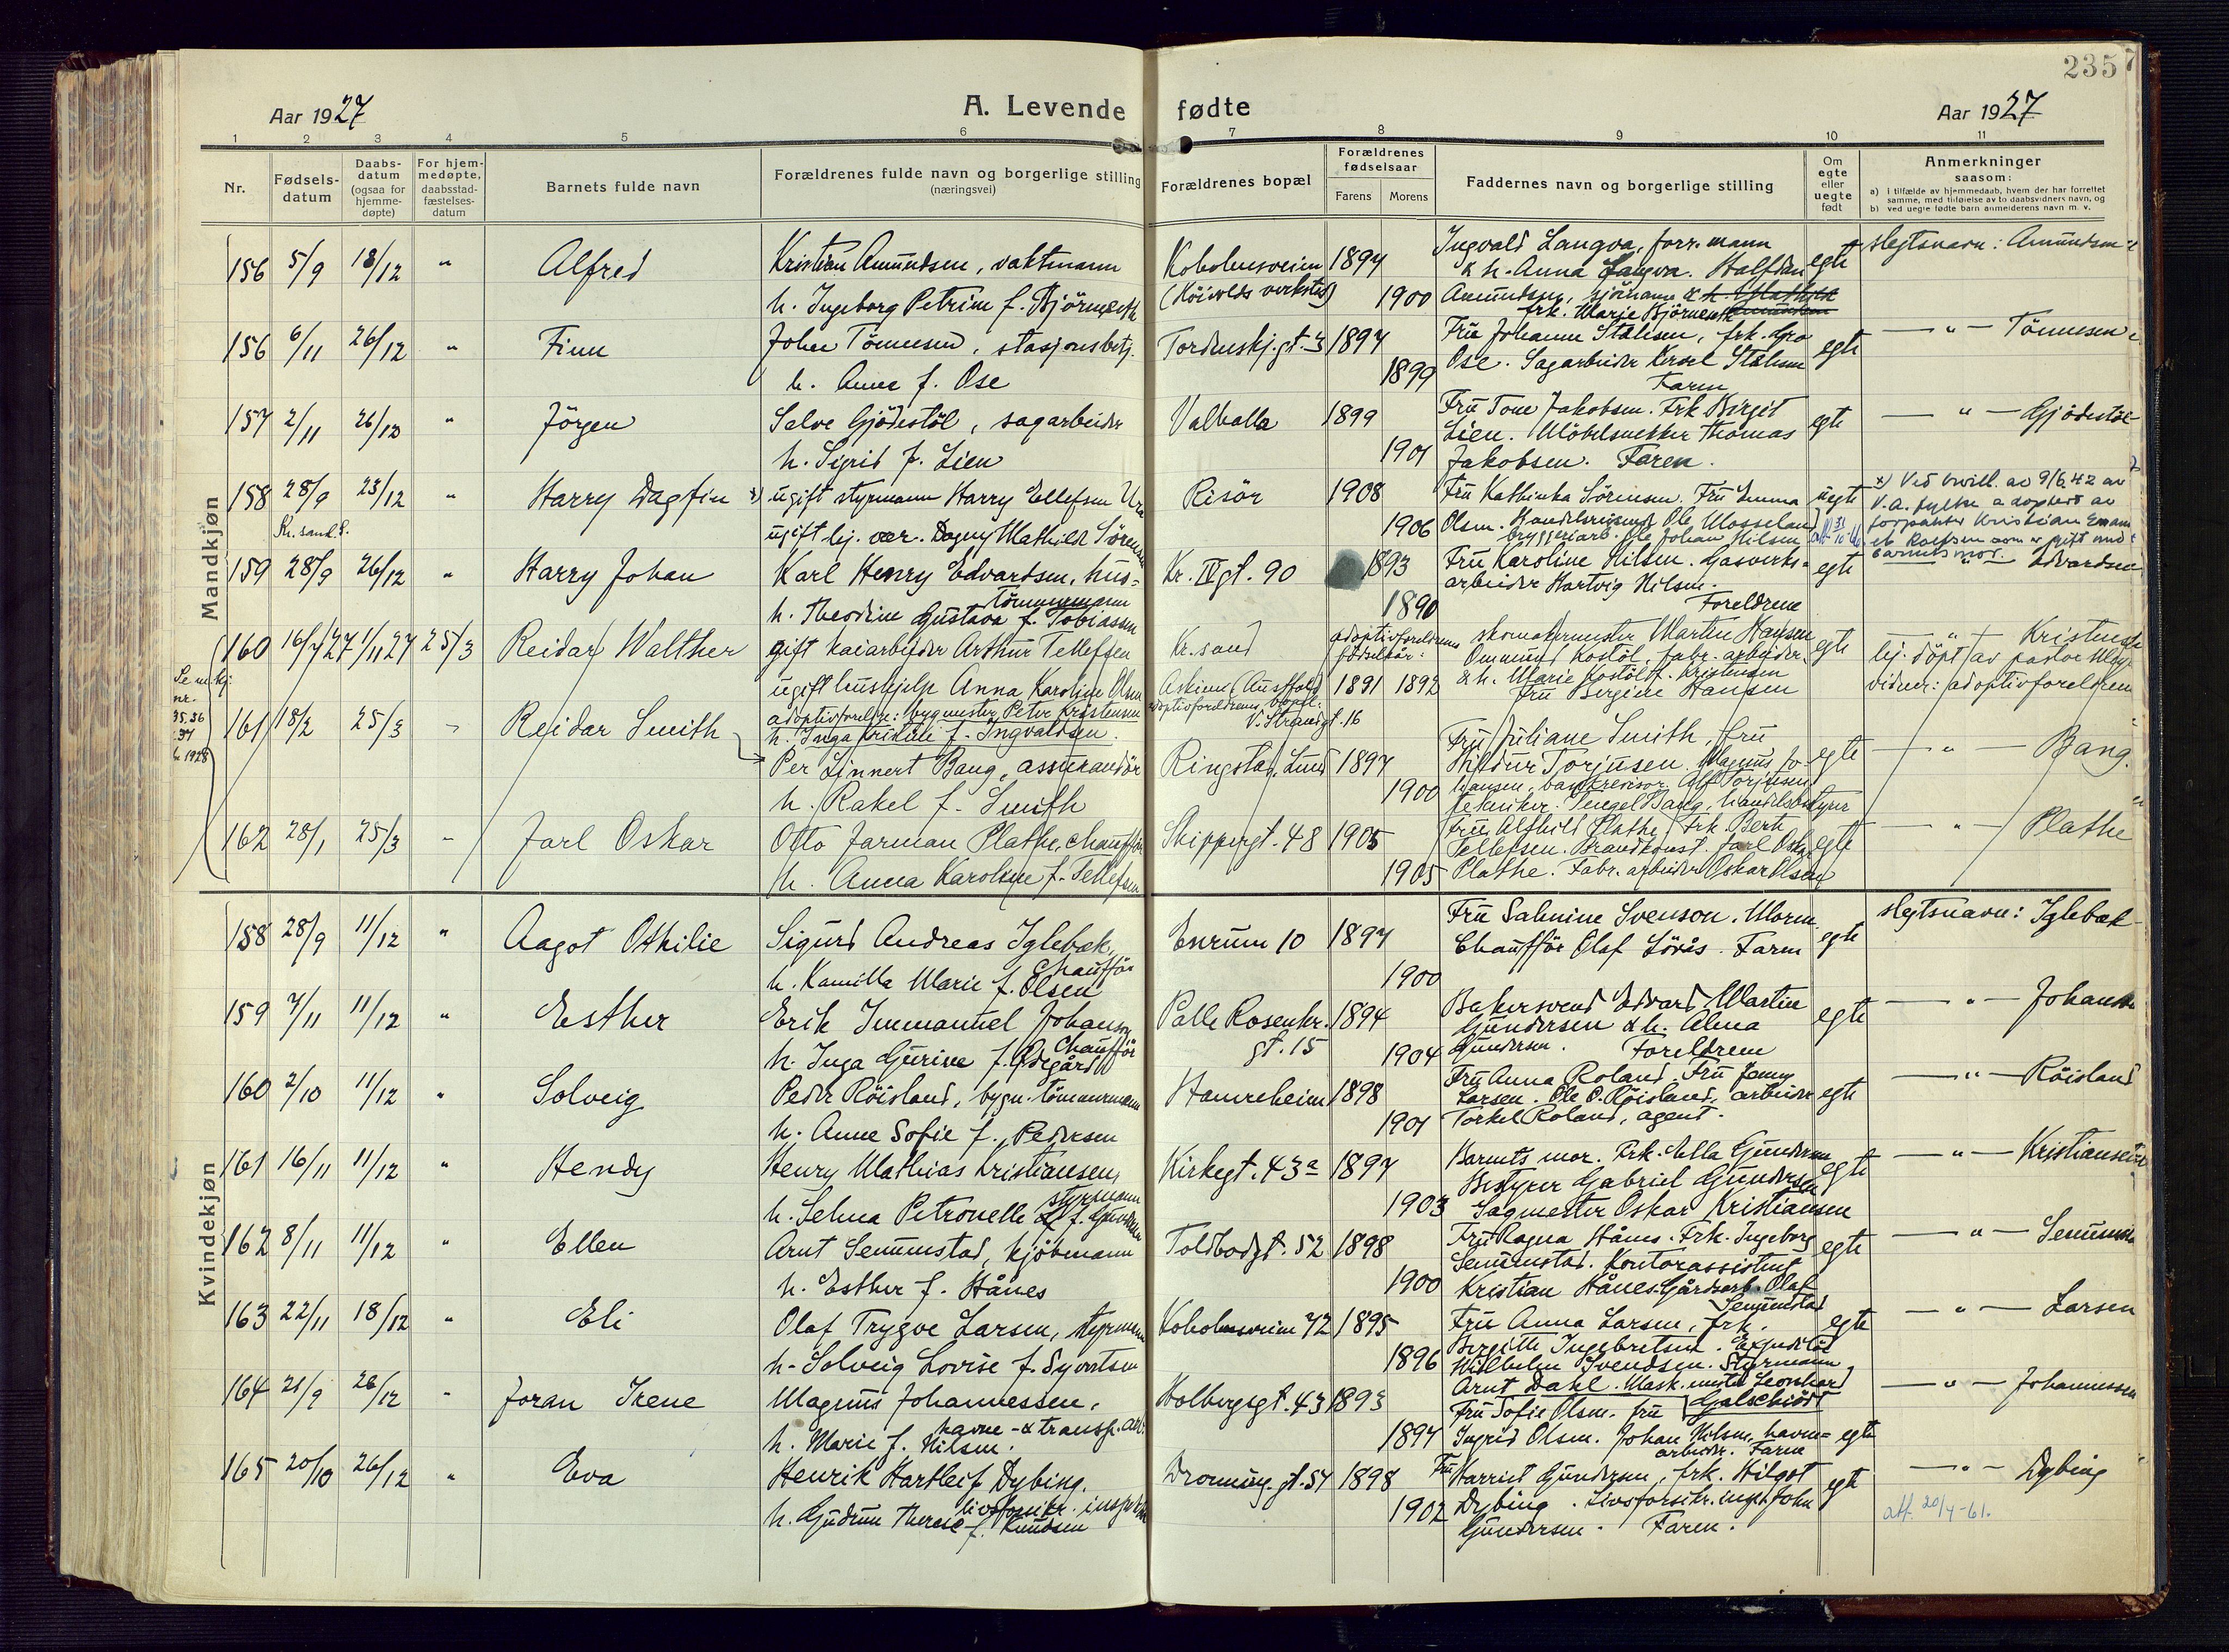 235
Aar 1927
A. Levende fødte
Aar 1927
1 2 3 4 5 6 7 8 9 10 11
Nr.
Fødsels-
datum
Daabs-
datum
(ogsaa for
hjemme-
døpte)
For hjem-
medøpte,
daabsstad-
fæstelses-
datum
Barnets fulde navn
Forældrenes fulde navn og borgerlige stilling
(næringsvei)
Forældrenes bopæl
Forældrenes
fødselsaar
Farens Morens
Faddernes navn og borgerlige stilling
Om
egte
eller
uegte
født
Anmerkninger
saasom:
a) i tilfælde av hjemmedaab, hvem der har forrettet
samme, med tilføielse av to daabsvidners navn, og
b) ved uegte fødte barn anmelderens navn m. v.
Mandkjøn
156 5/9 18/12 " Alfred
Kristian Amundsen, vaktmann
h. Ingeborg Petrine f. Björnevik
Koholmsveien
1897
1900
Ingvald Langva, forr. mann
& h. Anna Langva. Halfdan
Amundsen, sjömann & h.
frk. Marie
egte
slegtsnavn: Amundsen
156 6/11 26/12 " Finn
Johan Tönnesen, stasjonsbetj.
h. Anna f. Ose
Tordenskj.gt. 3
1897
1899
Fru Johanne Stålesen, frk. Gro
Ose. Sagarbeider Stålesen
Faren
egte
— " — Tönnesen
157 2/11 26/12 " Jörgen
Salve Gjödestöl, sagarbeider
h. Sigrid f. Lien
Valhalla
1899
1901
Fru Tone Jakobsen. Frk Birgit
Lien. Möbelsnekker Thomas
Jakobsen. Faren.
egte
— " — Gjödestöl
158 28/9 23/12 " Harry Dagfin x)
Kr.sand S.
ugift styrmann Harry Ellefsen
ugift tj. Dagny Mathilde Sörensen
Risör
1908
1906
Fru Kathinka Sörensen. Fru Emma
Olsen. Handelsreisende Ole Mosseland
bryggeriarb. Ole Johan Nilsen
uegte
x) Ved bevill. av 9/6 42 av
V. A. fylke adoptert av
forpakter Kristian
Rolfsen som er gift med
barnets mor.
159 28/9 26/12 " Harry Johan
Karl Henry Edvardsen, hus-
tömmermann
h. Theodine Gustava f. Tobiassen
Kr. IV gt. 90
1893
1890
Fru Karoline Nilsen. Gasverks-
arbeider Hartvig Nilsen.
Foreldrene
egte
" Edvardsen
160 16/7 27 1/11 27 25/3 Reidar Walther
gift kaiarbeider Arthur Tellefsen
ugift hushjelp Anna Karoline Olsen
adoptivforeldre: bygmester Peter Kristensen
h. Inga f. Ingvaldsen.
Kr.sand
Askim (Austfold)
adoptivforeldrenes bopel:
V. Strandgt. 16
adoptivforeldrenes
födselsår:
1891 1892
skomakermester Martin Hansen
Ommund Kostöl, fabr. arbeider,
& h. Marie Kostöl f. Kristensen
fru Bergine Hansen
egte
— " — Kristensen
hj. döpt av pastor
vidner: adoptivforeldrene
Se mkj.
nr.
35. 36
37
1928
161 18/2 25/3 - Reidar Smith
Per Linnert Bang, assurandör
h. Rakel f. Smith
Ringstad, Lund
1897
1900
Fru Juliane Smith, fru
Hildur Torjusen. Magnus Jo-
hansen, bankrevisor. Alf Torjusen
tekniker. Bang, handelsbestyrer
egte
— " — Bang.
162 28/1 25/3 - Jarl Oskar
Otto Jarman Plathe, chaufför
h. Anna Karoline f. Tellefsen
Skippergt. 48
1905
1905
Fru Alfhild Plathe. Frk. Bert
Tellefsen. Brandkonst. Jarl Oskar
Plathe. Fabr. arbeider Oskar Olsen
egte
— " — Plathe
Kvindekjøn
158 28/9 11/12 " Aagot Othilie
Sigurd Andreas Iglebæk,
chaufför
h. Kamilla Marie f. Olsen
Enrum 10
1897
1900
Fru Salmine Svenson. Moren
Chaufför Olaf Lörås. Faren
egte
slegtsnavn: Iglebæk
159 7/11 11/12 " Esther
Erik Immanuel Johansen
chaufför
h. Inga Gurine f. Ödegård
Palle Rosenkr.
gt. 15
1894
1904
Bakersvend Edvard Martin
Gundersen & h. Alma
Gundersen. Foreldrene
egte
— " — Johansen
160 2/10 11/12 " Solveig
Peder Röisland, bygn. tömmermann
h. Anne Sofie f. Pedersen
Hamreheien
1898
1901
Fru Anna Roland. Fru Jenny
Larsen. Ole O. Röisland, arbeider
Torkel Roland, agent.
egte
— " — Röisland
161 16/11 11/12 " Hendy
Henry Mathias Kristiansen,
styrmann
h. Selma Petronelle f. Gundersen
Kirkegt. 43a
1897
1903
Barnets mor. Frk. Alla Gundersen
Bestyrer Gabriel Gundersen
Sagmester Oskar Kristiansen
egte
— " — Kristiansen
162 8/11 11/12 " Ellen
Arnt Senumstad, kjöbmann
h. Esther f. Hånes
Toldbodgt. 52
1898
1900
Fru Ragna Hånes. Frk. Ingeborg
Senumstad. Kontorassistent
Kristian Hånes. Gårdsarb. Olaf
Senumstad
egte
— " — Senumstad
163 22/11 18/12 " Eli
Olaf Trygve Larsen, styrmann
h. Solveig Lovise f. Syvertsen
Koholmsveien 42
1895
1896
Fru Anna Larsen, frk.
Birgitte Ingebretsen. Expeditör
Wilhelm Svendsen. Styrmann
Arnt Dahl. Mask.mester Leonhard
Galschiödt
egte
— " — Larsen
164 21/9 26/12 " Joran Irene
Magnus Johannessen,
havne- & transp. arb.
h. Marie f. Nilsen.
Holbergsgt. 43
1893
1897
Fru Sofie Olsen. fru
Ingrid Olsen. Johan Nilsen, havne-
arbeider. Faren
egte
— " — Johannessen
165 20/10 26/12 " Eva
Henrik Hartleif Dybing.
livsforsikr. inspektör
h. Gudrun Therese f. Knudsen
Dronning. gt. 54
1898
1902
Fru Harriet Gundersen, frk. Hilgot
Dybing. Livsforsikr. insp. John
Gundersen. Faren.
egte
— " — Dybing
att. 20/4-61.